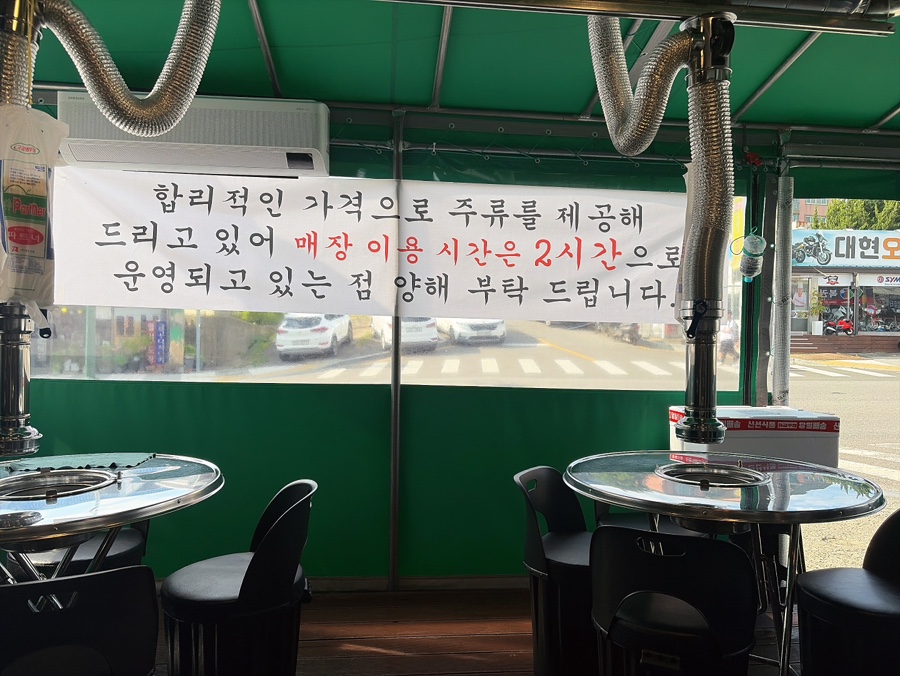 합리적인 가격으로 주류를 제공해
드리고 있어 매장 이용 시간은 2시간으로
운영되고 있는 점 양해 부탁 드립니다.
대현오
SYM
신선식품
당일배송